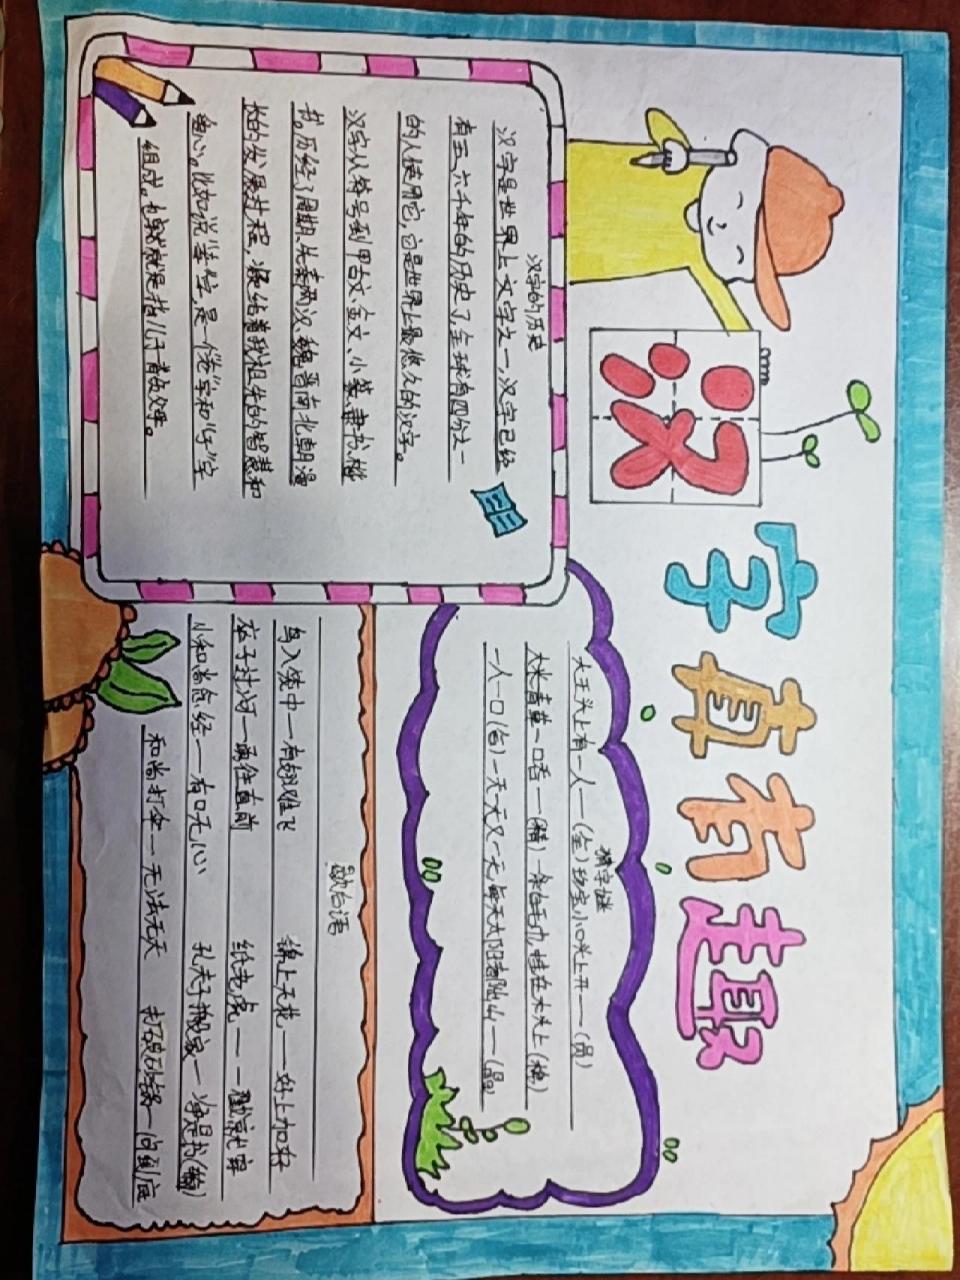 汉字真有趣
汉字的历史
汉字是世界上文字之一,汉字已经
有五、六千年的历史了,全球有四份之一
的人使用它,它是世界上最悠久的汉字。
汉字从符号到甲古文、金文、小篆、隶书、楷
书。历经了周期、先秦两汉、魏晋南北朝漫
长的发展过程,凝结着我祖先的智慧和
组成。
猜字谜
大王头上有一人——(全)珍宝,小口头上开——(员)
大米青草一口吞——(精)一条白毛巾,挂在木头上(棉)
一人一口(合)一天一天又一天,每天太阳都陆山——(晶)
歇后语
鸟入笼中—有翅难飞 锦上天花——好上加好
卒子过河—满往直前 纸老虎——一戳就穿
小和尚念经——有口无心 孔夫子搬家——净是书(输)
和尚打伞——无法无天 打破砂锅—问到底